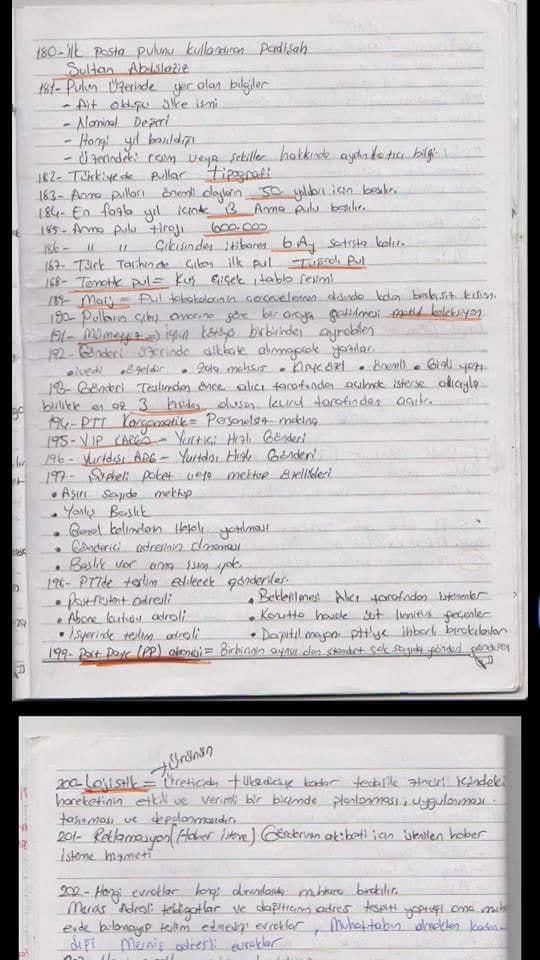 180- İlk posta pulunu kullandıran Padişah
Sultan Abdülaziz
181- Pulun üzerinde yer alan bilgiler
- Ait olduğu ülke ismi
- Nominal Değeri
- Hangi yıl basıldığı
- Üzerindeki resim veya şekiller hakkında aydınlatıcı bilgi.
182- Türkiyede pullar tipografi
183- Anma pulları önemli olayların 50. yıldır için basılır.
184- En fazla yıl içinde 13 Anma pulu basılır.
185- Anma pulu tirajı 600.000
186- " " Çıkışından itibaren 6 Ay satışta kalır.
187- Türk Tarihinde Çıkan ilk pul - Tuğralı pul
188- Tematik pul = Kuş Çiçek, tablo resmi
189- Marj = Pul tabakalarının çerçevelerinin dışında kalan kısım.
190- Pulların çıkış amacına göre bir araya getirilmesi motif koleksiyon
191- Mümeyyiz = birbirinden ayırabilen
192- Gönderi üzerinde dikkate alınmayacak yazılar.
• ivedi • • Zata mahsus • • önemli • Gizli yazı
193- Gönderi Tesliminden önce alıcı tarafından açılmak isterse alıcıyla
birlikte en az 3 kişiden oluşan kurul tarafından açılır.
194- PTT Kargomatik = Personelsiz makina
195- VIP CARGO - Yurtiçi Hızlı Gönderi
196- Yurtdışı APG - Yurtdışı Hızlı Gönderi
197- Şüpheli paket veya mektup özellikleri
• Aşırı sayıda mektup
• Yanlış Başlık
• Genel yazılması
• Gönderici adresinin olmaması
• Başlık var ama isim yok.
198- PTTde teslim edilecek gönderiler.
• Postrestant adresli • Bekletilmesi Alıcı tarafından istenenler
• Abone kutusu adresli • Konutta havale üst limitini geçenler
• İşyerinde teslim adresli • Dağıtılmayan pttye ihbarlı bırakılanlar
199- Port Paye (PP) abonesi = Birbirinin aynısı olan standart çok sayıda gönderi gönderen
Ürünün
200- Lojistik = Üreticiden tüketiciye kadar tedarik zinciri içindeki
hareketinin etkili ve verimli bir biçimde planlanması, uygulanması
taşınması ve depolanmasıdır.
201- Reklamasyon (Haber isteme) Gönderinin akibeti için istenilen haber
isteme hizmeti
202- Hangi evraklar hangi durumlarda muhtara bırakılır.
Mernis Adresli tebligatlar ve dağıtıcının adres tespiti yaptığı ama
evde bulamayıp teslim edmediği evraklar, Muhattabın almaktan kaçın-
dığı Mernis adresli evraklar